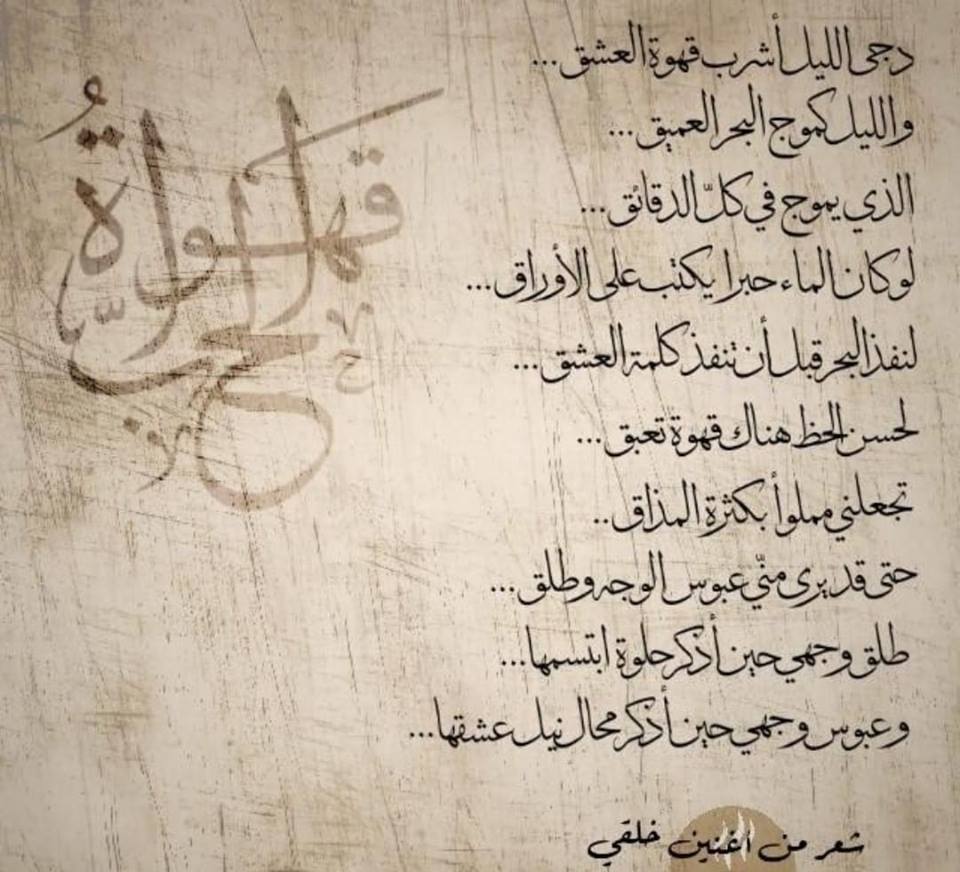 دجى الليل أشرب قهوة العشق...
والليل كموج البحر العميق...
الذي يموج في كلّ الدقائق...
لو كان الماء حبرا يكتب على الأوراق...
لنفذ البحر قبل أن تنفذ كلمة العشق...
لحسن الحظ هناك قهوة تعبق...
تجعلني مملوأ بكثرة المذاق..
حتى قد يرى منّي عبوس الوجه وطلق...
طلق وجهي حين أذكر حلوة ابتسمها...
وعبوس وجهي حين أذكر محال نيل عشقها...
قهواة
الحبّ
شعر من اغنين خلقي